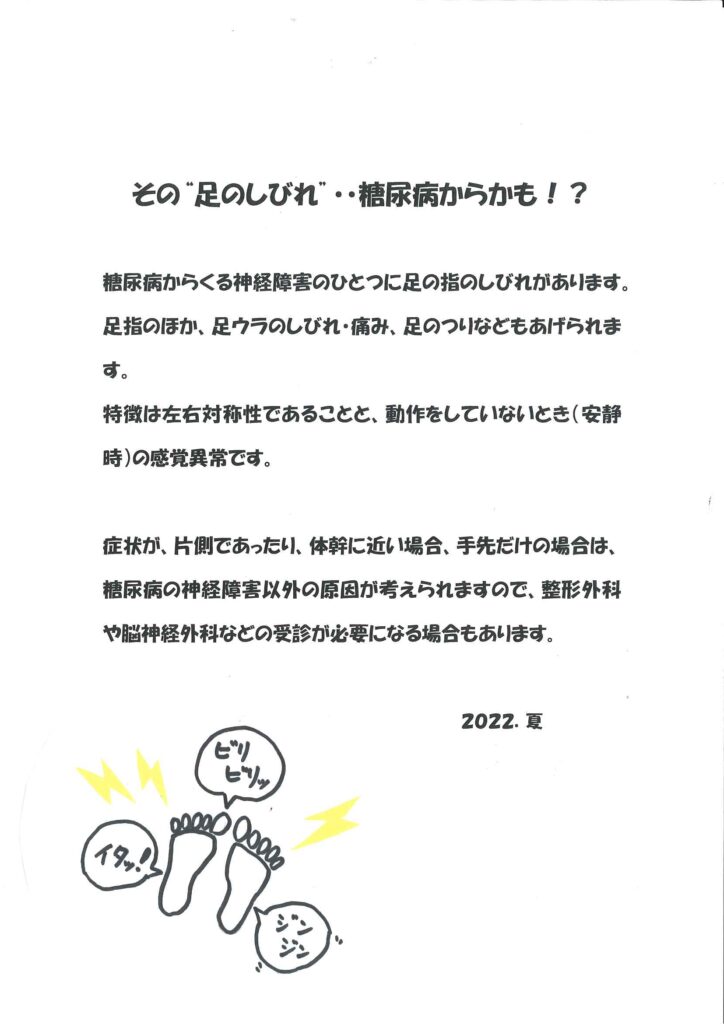 その“足のしびれ”‥糖尿病からかも！？
糖尿病からくる神経障害のひとつに足の指のしびれがあります。
足指のほか、足ウラのしびれ・痛み、足のつりなどもあげられま
す。
特徴は左右対称性であることと、動作をしていないとき（安静
時）の感覚異常です。
症状が、片側であったり、体幹に近い場合、手先だけの場合は、
糖尿病の神経障害以外の原因が考えられますので、整形外科
や脳神経外科などの受診が必要になる場合もあります。
2022.夏
ビリ
ビリッ
イタッ！
ジン
ジン